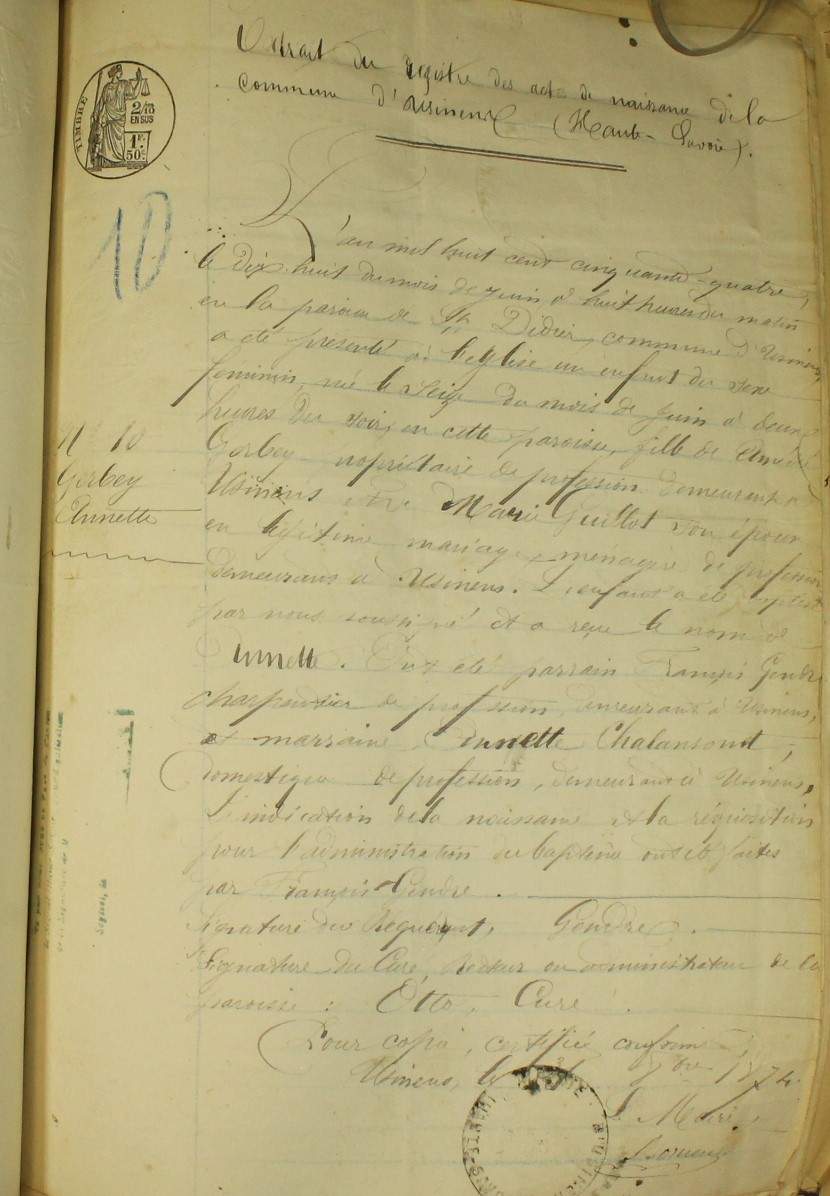 Extrait du registre des act de naissance de la
commune d'Usinens (Haute-Savoie).
TIMBRE
2/10
EN SUS
1F.
50c.
10
L'an mil huit cent cinquante quatre,
le Dix huit du mois de Juin à huit heures du matin
en la paroisse de St Didier, commune d'Usinens,
a été présenté à l'église un enfant du sexe
féminin, née le Seize du mois de Juin à deux
heures du soir, en cette paroisse, fille de
N° 10
Gerbey
Annette
Gerbey propriétaire de profession demeurant à
Usinens et de Marie Guillot son épouse
en légitime mariage, ménagère de profession
demeurans à Usinens. L'enfant a été baptisé
par nous soussigné et a reçu le nom de
Annette. Ont été parrain François Gendre
charpentier de profession, demeurant à Usinens,
et marraine Annette Chalansond,
domestique de profession, demeurant à Usinens,
L'indication de la naissance et la réquisition
pour l'administration du baptême ont été faites
par François Gendre.
Signature du Requérant, Gendre.
Signature du Curé, Recteur ou administrateur de la
paroisse : Etto, Curé
Pour copie, certifiée conforme
Usinens, le 7bre 1874.
Le Maire,
MAIRIE